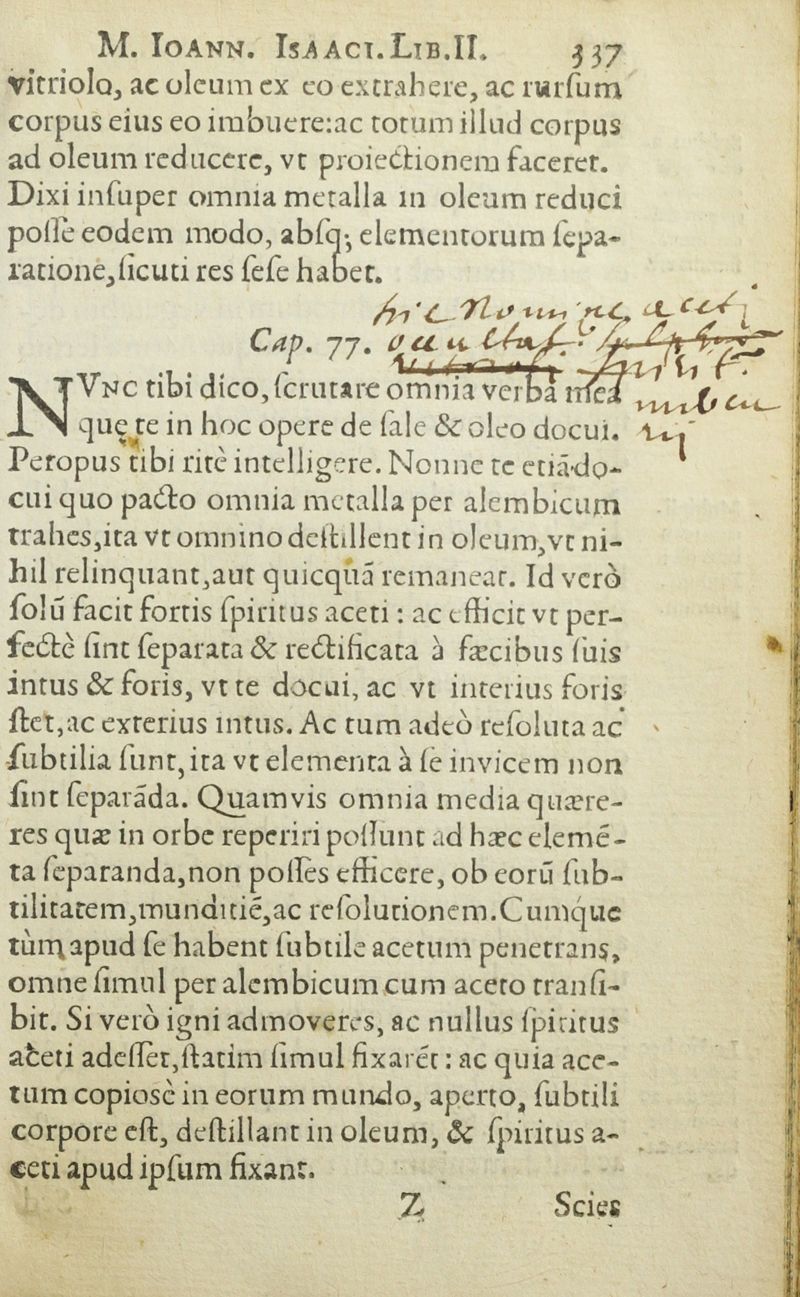 M. IOANN. ISAACI. LIB. II. 337
vitriolo, ac oleum ex eo extrahere, ac rursum
corpus eius eo imbuere: ac totum illud corpus
ad oleum reducere, vt proiectionem faceret.
Dixi insuper omnia metalla in oleum reduci
posse eodem modo, absq; elementorum sepa-
ratione, sicuti res sese habet.
Cap. 77.
NVNC tibi dico, scrutare omnia verba mea
quę te in hoc opere de sale & oleo docui.
Peropus tibi ritè intelligere. Nonne te etiã do-
cui quo pacto omnia metalla per alembicum
trahes, ita vt omnino destillent in oleum, vt ni-
hil relinquant, aut quicquã remanear. Id verò
solũ facit fortis spiritus aceti : ac efficit vt per-
fectè sint separata & rectificata à fæcibus suis
intus & foris, vt te docui, ac vt interius foris
stet, ac exterius intus. Ac tum adeò resoluta ac
subtilia sunt, ita vt elementa à se invicem non
sint separãda. Quamvis omnia media quære-
res quæ in orbe reperiri possunt ad hæc elemẽ-
ta separanda, non posses efficere, ob eorũ sub-
tilitatem, munditiẽ, ac resolutionem. Cumque
tùm apud se habent subtile acetum penetrans,
omne simul per alembicum cum aceto transi-
bit. Si verò igni admoveres, ac nullus spiritus
aceti adesset, statim simul fixarẽt : ac quia ace-
tum copiosè in eorum mundo, aperto, subtili
corpore est, destillant in oleum, & spiritus a-
ceti apud ipsum fixant.
Z Scies